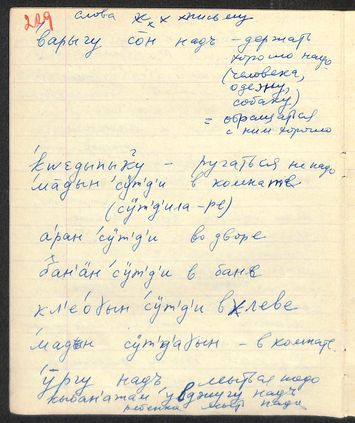 229 слова к письму
варыгу со̄н надъ – держать
хорошо надо
(человека,
одежу,
собаку)
= обращаться
с ним хорошо
– ругаться не надо
ма́дын сӱ̄т'д'и в комнате
(сӱ̄т'д'ила-ре)
а́ран сӱ̄т'д'и во дворе
бан'ан сӱ̄т'д'и в бане
хл'ео́ɣын сӱ̄т'д'и в хлеве
ма́дын сӱ̄т'д'аɣын – в комнате
ӱ̄ргу надъ мыться надо
надъ
ребёнка мыть надо